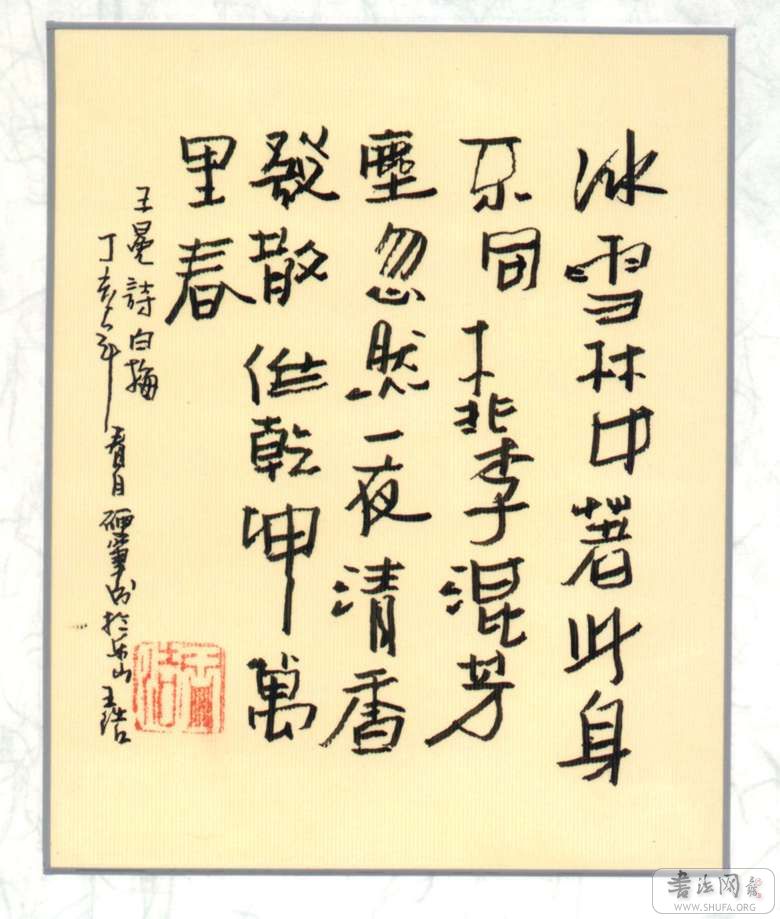 冰雪林中著此身
不同桃李混芳
塵忽然一夜清香
發散作乾坤萬
里春
王冕詩白梅
丁亥年春月硬筆書於乐山王浩
书法网
WWW.SHUFA.ORG